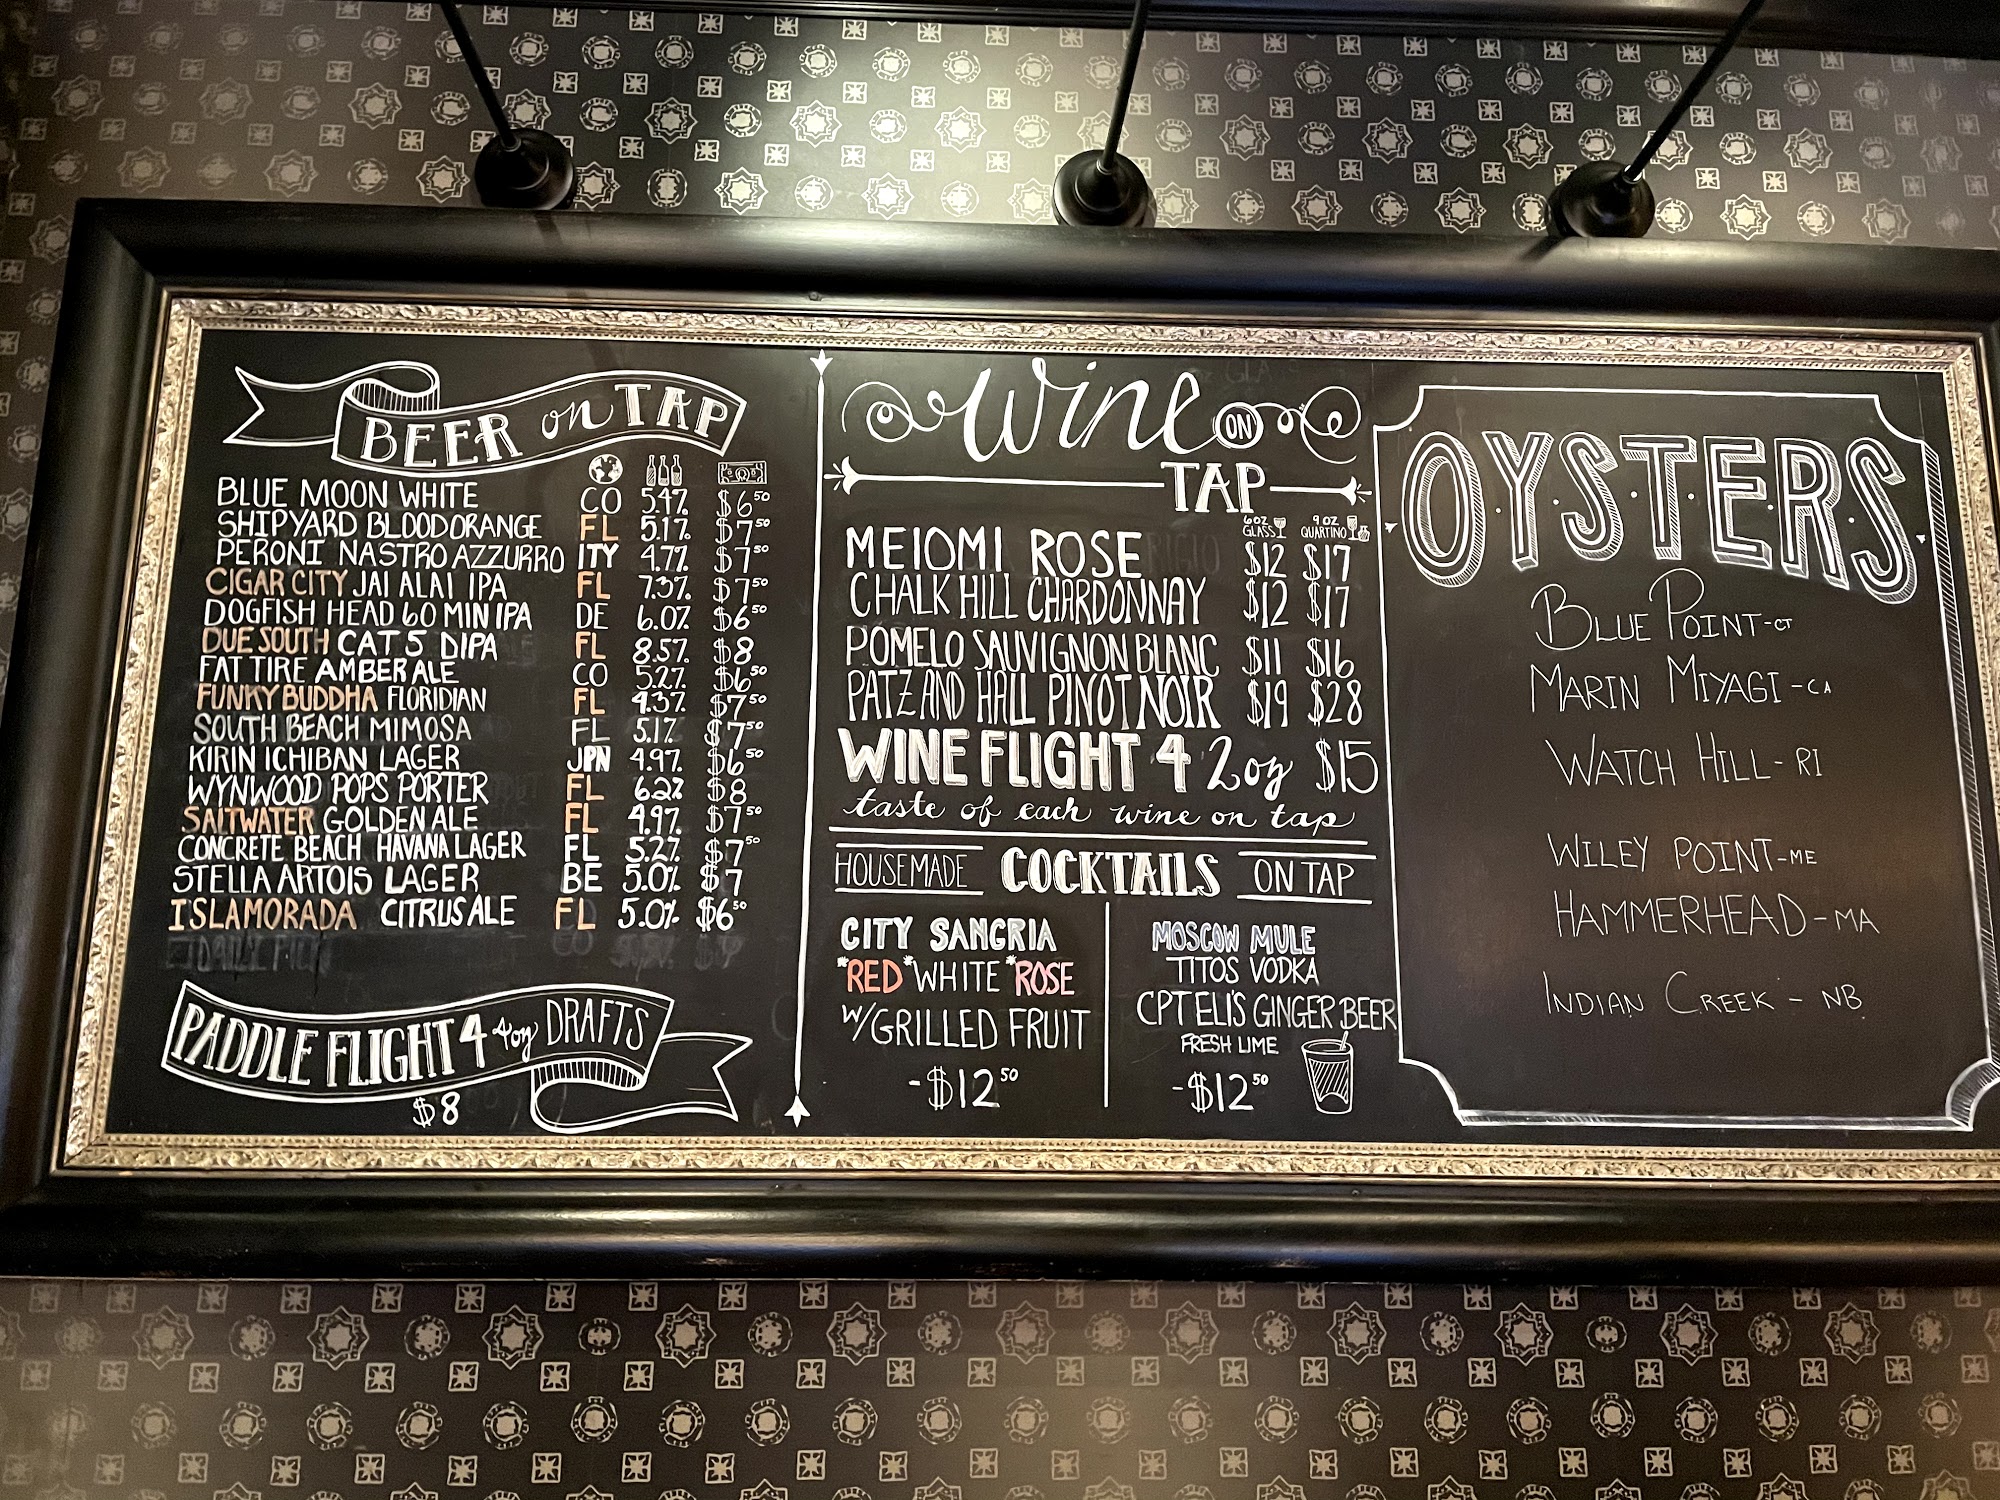 BEER on TAP
BLUE MOON WHITE CO 5.4% $6.50
SHIPYARD BLOOD ORANGE FL 5.1% $7.50
PERONI NASTRO AZZURRO ITY 4.7% $7.50
CIGAR CITY JAI ALAI IPA FL 7.3% $7.50
DOGFISH HEAD 60 MIN IPA DE 6.0% $6.50
DUE SOUTH CAT 5 DIPA FL 8.5% $8
FAT TIRE AMBER ALE CO 5.2% $6.50
FUNKY BUDDHA FLORIDIAN FL 4.3% $7.50
SOUTH BEACH MIMOSA FL 5.1% $7.50
KIRIN ICHIBAN LAGER JPN 4.9% $6.50
WYNWOOD POPS PORTER FL 6.2% $8
SALTWATER GOLDEN ALE FL 4.9% $7.50
CONCRETE BEACH HAVANA LAGER FL 5.2% $7.50
STELLA ARTOIS LAGER BE 5.0% $7
ISLAMORADA CITRUS ALE FL 5.0% $6.50
PADDLE FLIGHT 4 4oz DRAFTS
$8
Wine ON
TAP
6 OZ GLASS 9 OZ QUARTINO
MEIOMI ROSE $12 $17
CHALK HILL CHARDONNAY $12 $17
POMELO SAUVIGNON BLANC $11 $16
PATZ AND HALL PINOT NOIR $19 $28
WINE FLIGHT 4 2oz $15
taste of each wine on tap
HOUSEMADE COCKTAILS ON TAP
CITY SANGRIA
*RED *WHITE *ROSE
W/GRILLED FRUIT
-$12.50
MOSCOW MULE
TITOS VODKA
CPT ELI'S GINGER BEER
FRESH LIME
-$12.50
OYSTERS
BLUE POINT-CT
MARIN MIYAGI-CA
WATCH HILL-RI
WILEY POINT-ME
HAMMERHEAD-MA
INDIAN CREEK - NB